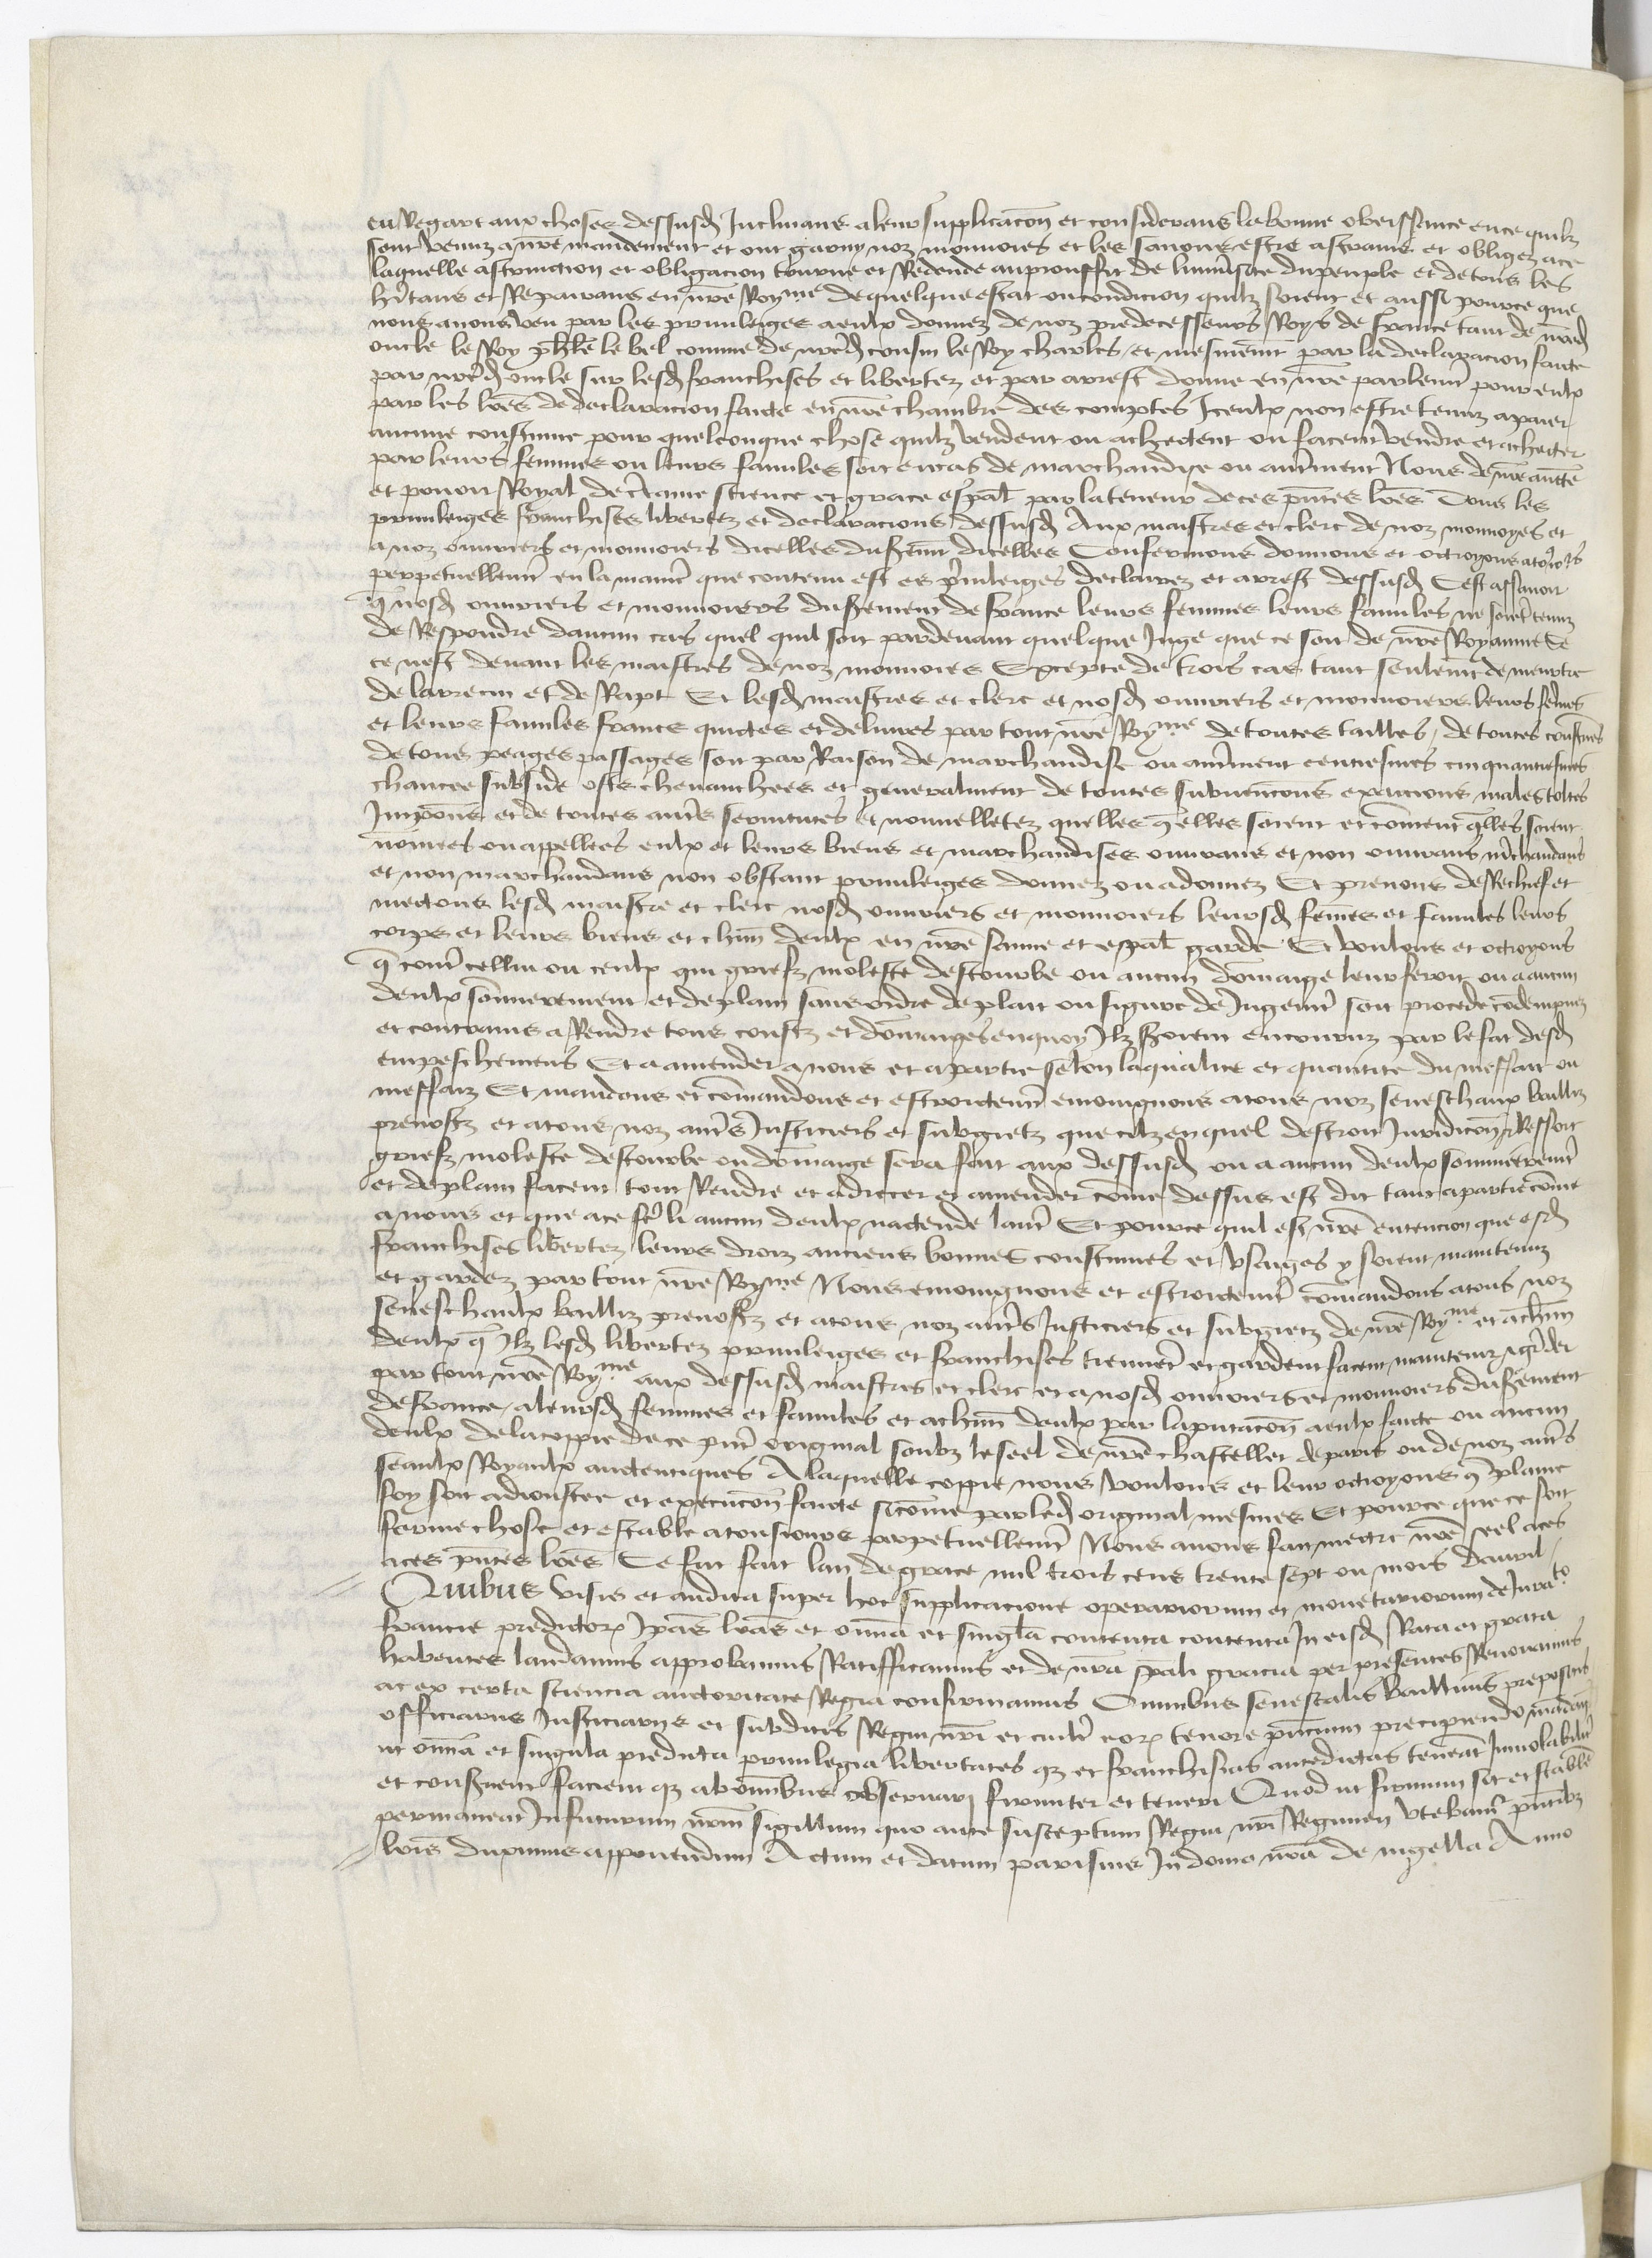 eu Regart aux choses dessusd Inclinans a leur supplicacon et considerans la bonne obeissance en ce quilz
sont venuz a nre mandement et ont garny noz monnoies et les sauons estre astrains et obligez a ce
laquelle astrinction et obligacion tourne et Redonde au prouffit de luniuste du peuple et de tous les
hitans et Repairans en nre Royme de quelque estat ou condicion quilz soient et aussi pource que
nous auons veu par les priuileiges a eulx donnez de noz predecesseurs Roys de france tant de nred
oncle le Roy phle le bel comme de nred cousin le Roy charles et mesmemt par la declaracion faite
par nred oncle sur lesd franchises et libertez et par arrest donne en nre parlemt pour eulx
par les lres de declaracion faicte en nre chambre des comptes Iceulx non estre tenuz a paier
aucune coustume pour quelconque chose quilz vendent ou achectent ou facent vendre et achecter
par leurs femmes ou leurs familes soit en cas de marchandise ou autrement Nous de nre aucte
et pouoir Royal de ctaine science et grace espal par la teneur de ces pntes lres Tous les
priuileiges franchises libertez et declaracions dessusd Aux maistres et clerc de noz monnoyes et
a noz ouuriers et monnoiers dicelles du sermt dicelles Confermons donnons et octroyons a tousiours
perpetuellemt en la maniere que contenu est es priuileiges declairez et arrest dessusd Cest assauoir
q nosd ouuriers et monnoiers du serement de france leurs femmes leurs familes ne soient tenuz
de Respondre daucun cas quel quil soit pardeuant quelque Juge que ce soit de nre Royaume se
ce nest deuant les maistres de noz monnoies Excepte de trois cas tant seulemt de meurtre
de larrecin et de Rapt Et lesd maistres et clerc et nosd ouuriers et monnoiers leurs femes
et leurs familes francs quictes et deliures par tout nre Royme de toutes tailles de toutes coustumes
de tous peages passages soit par Raison de marchandise ou autrement centiesmes cinquantiesmes
chaucee subside osts cheuauchees et generalment de toutes subuencons exaccions males toltes
Impons et de toutes autres seruitutes et nouuelletez quelles qelles soient et coment qlles soient
nomees ou appellees eulx et leurs biens et marchandises ouurans et non ouurans mrchandans
et non marchandans non obstant priuileiges donnez ou a donnez Et prenons de Rechief et
mectons lesd maistre et clerc nosd ouuriers et monnoiers leursd femes et familes leurs
corps et leurs biens et chun deulx en nre sauue et espal garde Et voulons et octroyons
q contre cellui ou ceulx qui griefz moleste destourbe ou aucun domaige leur feroit ou a aucun
deulx somierement et de plain sans ordre de plait ou figure de Jugemt soit procede condempnez
et contrains a Rendre tous coustz et domaiges enquoy Ilz seroient encouruz par le fait desd
empeschemens Et a amender a nous et a partie selon la qualite et quantite du meffait ou
meffaiz Et mandons et comandons et estroictemt enioignons a tous noz seneschaux bailliz
preuostz et a tous noz autres Justiciers et subgietz que cilz en quel destroit Juridicon & Ressort
griefz moleste destourbe ou domaige sera fait aux dessusd ou a aucun deulx sommierement
et de plain facent tout Rendre et adrecer et amender come dessus est dit tant a partie come
a nous et que a ce fere li aucun deulx nactende lautre Et pource quil est nre entencion que esd
franchises libertez leurs droiz anciens bonnes coustumes et vsaiges y soient maintenuz
et gardez par tout nre Royme Nous enioignons et estroictemt comandons a tous noz
seneschaulx bailliz preuostz et a tous noz autres Justiciers et subgietz de nre Royme et a chun
deulx q Ilz lesd libertez priuileiges et franchises tiennent et gardent facent maintenir & garder
par tout nre Royme aux dessusd maistres et clerc et a nosd ouuriers et monnoiers du serement
de france a leursd femmes et familes et a chun deulx par la putacon a eulx faicte ou aucun
deulx de la coppie de ce pnt original soubz le seel de nre chastellet de paris ou de noz autres
seaulx Royaulx auctentiques A laquelle coppie nous voulons et leur octroyons q plaine
foy soit adioustee et execucon faicte si come par led original mesmes Et pource que ce soit
ferme chose et estable a tousiours perpetuellemt Nous auons fait mectre nre seel a ces
a ces pntes lres Ce fut fait lan de grace mil trois cens trente sept ou mois dauril
Quibus visis et audita super hoc supplicacione operariorum et monetariorum de Jurato
francie predictor Ipas lras et omia et singla contenta contenta In eisd Rata et grata
habentes laudamus approbamus Ratifficamus et de nra spali gracia per presentes Renouamus
ac ex certa sciencia auctoritate Regia confirmamus Omnibus senescallis bailliuis prepositis
officiariis Justiciariis et subditis Regni nri et cuilt eor tenore pncium precipiendo madam
ut omia et singula predicta priuilegia libertates qz et franchisias antedictas teneat Inuiolabiliter
et conseruent facient qz ab omibus obseruari firmiter et teneri Quod ut firmum sit et stabile
permaneat In futurum nrm sigillum quo ante susceptum Regni nri Regimen vtebamur pntibz
lris duximus apponendum Actum et datum parisius In domo nra de nigella Anno